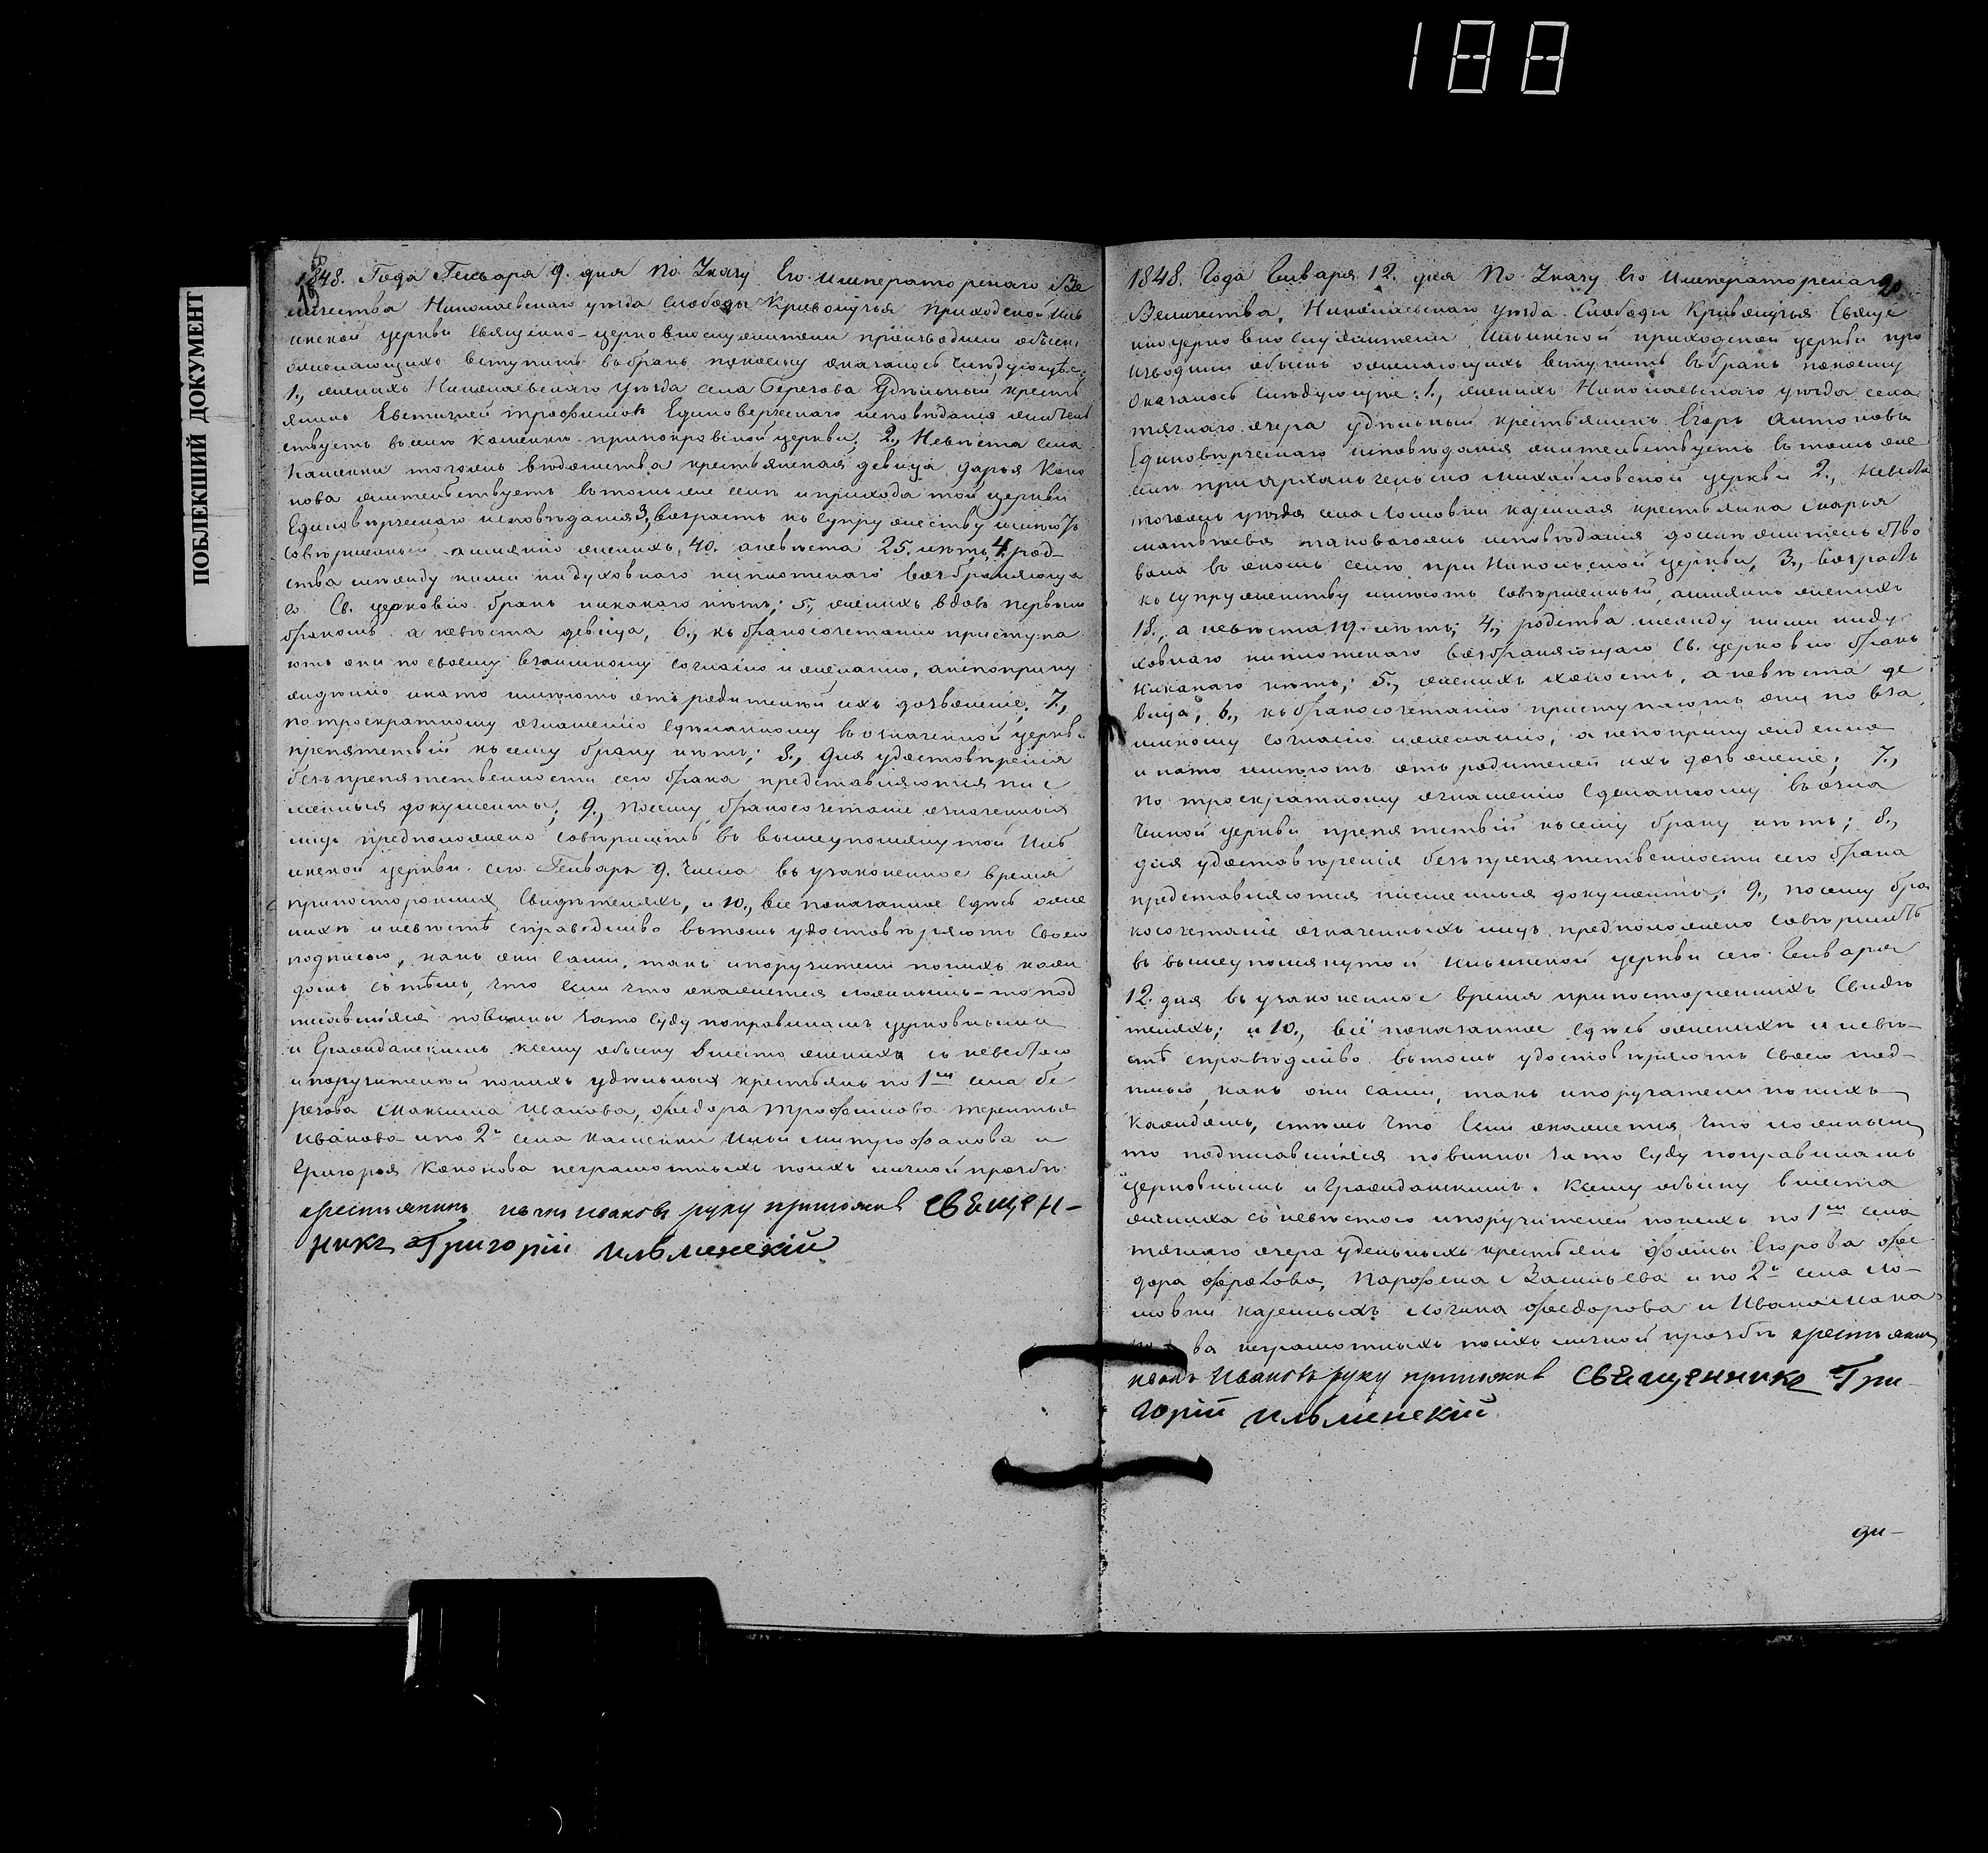 188
ПОБЛЕКШИЙ ДОКУМЕНТ
1848. Года Генваря 9. дня По Указу Его императорскаго Ве
личества Николаевскаго уезда Слободы Криволучья Приходской Иль
инской церкви Священно-церковнослужители производили обыскъ
о желающихъ вступить въ бракъ по коему оказалось Следующее:
1., женихъ Николаевскаго уезда села Березова Удѣльный кресть
янинъ Евстигней трофимовъ Единоверческаго исповѣданія жительс
ствуетъ въ селѣ Каменкѣ при покровской церкви; 2., Невѣста села
Каменки тогожъ вѣдомства крестьянская девица дарья Коно
нова жительствуетъ въ томъ же селѣ и прихода той церкви
Единовѣрческаго исповѣданія 3, возрастъ къ Супружеству имѣютъ
совѣршенный, а имянно женихъ, 40. а невѣста 25. лѣтъ, 4. род-
ства между ними ни духовнаго ни плотскаго возбраняюща
го Св. церковію бракъ никакого нѣтъ; 5., женихъ вдовъ первымъ
бракомъ а невѣста девица, 6., къ бракосочетанію приступа
ютъ они по своему взаимному согласію и желанію, а не по прину
жденію и на то имѣютъ отъ родителей ихъ дозволеніе; 7.,
по троекратному оглашенію сделанному въ означенной церкви
препятствій къ сему браку нѣтъ; 8., Для удостовѣренія
безпрепятственности сего брака представляются пис
менныя документы; 9., посему бракосочетаніе означенныхъ
лицъ предположено совѣршить въ вышеупомянутой Иль
инской церкви сего Генваря 9. числа въ узаконенное время
при постороннихъ Свидѣтеляхъ, и 10., все показанное здѣсь о же
нихѣ и невѣстѣ справедливо въ томъ удостовѣряютъ своею
подписью, какъ они сами, такъ и поручители по нихъ каж
домъ съ тѣмъ, что если что окажется ложнымъ-то под
писавшіяся повинны за то суду по правиламъ церковнымъ
и Гражданскимъ к сему обыску вместо жениха съ невестою
и поручителей по нихъ удельныхъ крестьянъ по 1му села бе
резова Максима Иванова, Федора Трофимова терентья
Иванова и по 2й села каменки Ильи Митрофанова и
Григорья Кононова неграмотныхъ по ихъ личной прозбѣ
крестьянинъ иванъ ивановъ руку приложилъ священ-
никъ Григорій Ильминскій
20
1848. Года Генваря 12. дня По Указу Его Императорскаго
Величества, Николаевскаго уезда Слободы Кривалучья Свяще
нноцерковнослужители Ильинской приходской церкви про
изводили обыскъ о желающихъ вступить въ бракъ по коему
оказалось Слѣдующее: 1., женихъ Николаевскаго уезда села
тяглаго озера удѣльный крестьянинъ Егоръ Антоновъ
Единовѣрческаго исповѣданія жительствуетъ въ томъ же
селѣ при архангельско михайловской церкви 2., невеста
тогожъ уезда села Ломовки казенная крестьянка Марья
матвѣева таковагожъ исповѣданія доселѣ жительство
вала въ ономъ селѣ при Никольской церкви, 3., возрастъ
къ супружеству имѣютъ совѣршенный, а имянно женихъ
18., а невѣста 19. лѣтъ; 4., родства между ними ни ду
ховнаго ни плотскаго возбраняющаго Св. церковію бракъ
никакого нѣтъ; 5., женихъ холостъ, а невѣста де
вица, 6., къ бракосочетанію приступаютъ они по вза
имному согласію и желанію, а не по принуждению
и на то имѣютъ отъ родителей ихъ дозволеніе; 7.,
По троекратному оглашенію сделанному въ озна
ченной церкви препятствій къ сему браку нѣтъ; 8.,
для удостовѣренія безпрепятственности сего брака
представляются писменныя документы; 9., посему бра
косочетаніе означенныхъ лицъ предположено совѣршить
въ вышеупомянутой ильинской церкви сего Генваря
12. дня въ узаконенное время при постороннихъ Свидѣ
теляхъ; и 10., всё показанное здѣсь о женихѣ и невѣ-
стѣ справѣдливо въ томъ удостовѣряютъ своею под-
писью, какъ они сами, такъ и поручатели по нихъ
каждомъ, стѣмъ что если окажется что ложнымъ
то подписавшіеся повинны за то суду по правиламъ
церковнымъ и Гражданскимъ. К сему обыску вместа
жениха съ невѣстою и поручителей по нихъ по 1му села
тяглаго озера удельныхъ крестьянъ фомы Егорова фе
дора фролова, Парфена Васильева и по 2й села Ло-
мовки казенныхъ логина федорова и Ивана
ва неграмотныхъ по ихъ личной прозбѣ крестьянинъ
иванъ Ивановъ руку приложилъ священникъ Гри
горій Ильминскій